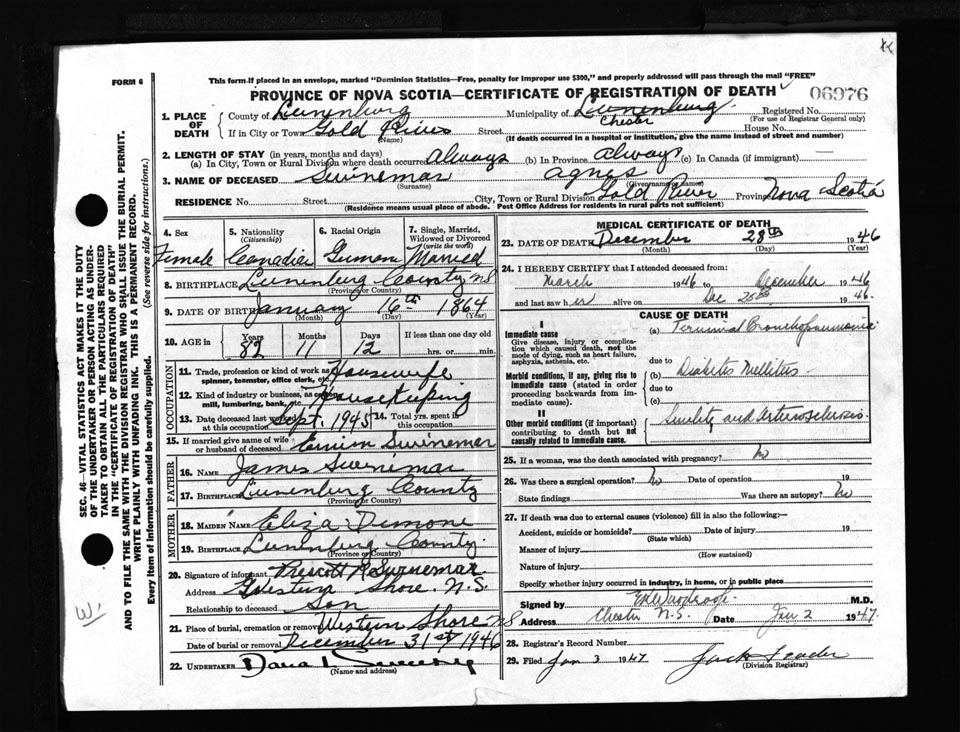 FORM 6
This form if placed in an envelope, marked "Dominion Statistics—Free, penalty for improper use $300," and properly addressed will pass through the mail "FREE"
PROVINCE OF NOVA SCOTIA—CERTIFICATE OF REGISTRATION OF DEATH
06976
1. PLACE OF DEATH
County of Lunenburg
Municipality of Lunenburg Chester
Registered No.
(For use of Registrar General only)
If in City or Town Gold River (Name) Street House No.
(If death occurred in a hospital or institution, give the name instead of street and number)
2. LENGTH OF STAY (in years, months and days)
(a) In City, Town or Rural Division where death occurred always (b) In Province always (c) In Canada (if immigrant)
3. NAME OF DECEASED Swinemar (Surname) Agnes (Given name or names)
RESIDENCE No. Street City, Town or Rural Division Gold River Province Nova Scotia
(Residence means usual place of abode. Post Office Address for residents in rural parts not sufficient)
4. Sex Female
5. Nationality (Citizenship) Canadian
6. Racial Origin German
7. Single, Married, Widowed or Divorced (write the word) Married
8. BIRTHPLACE Lunenburg County NS
(Province or Country)
9. DATE OF BIRTH January 16th 1864
(Month) (Day) (Year)
10. AGE in Years 82 Months 11 Days 12 If less than one day old hrs. or min.
OCCUPATION
11. Trade, profession or kind of work as spinner, teamster, office clerk, etc. Housewife
12. Kind of industry or business, as cotton mill, lumbering, bank, etc. Housekeeping
13. Date deceased last worked at this occupation Sept. 1945 14. Total yrs. spent in this occupation
15. If married give name of wife or husband of deceased Swinemar
FATHER
16. Name James Swinemar
17. Birthplace Lunenburg County
(Province or Country)
MOTHER
18. Maiden Name Eliza Dimone
19. Birthplace Lunenburg County
(Province or Country)
20. Signature of informant Prescott Swinemar
Address Western Shore N.S.
Relationship to deceased Son
21. Place of burial, cremation or removal Western Shore NS
Date of burial or removal December 31st 1946
22. UNDERTAKER
(Name and address)
MEDICAL CERTIFICATE OF DEATH
23. DATE OF DEATH December 28th 1946
(Month) (Day) (Year)
24. I HEREBY CERTIFY that I attended deceased from:
March 1946 to December 1946
and last saw her alive on Dec 26th 1946.
CAUSE OF DEATH
I
Immediate cause
Give disease, injury or complication which caused death, not the mode of dying, such as heart failure, asphyxia, asthenia, etc.
(a) Terminal Bronchopneumonia
due to
Morbid conditions, if any, giving rise to immediate cause (stated in order proceeding backwards from immediate cause).
(b) Diabetes Mellitus
due to
(c)
II
Other morbid conditions (if important) contributing to death but not causally related to immediate cause.
Senility and Arteriosclerosis
25. If a woman, was the death associated with pregnancy? No
26. Was there a surgical operation? No Date of operation 19
State findings Was there an autopsy? No
27. If death was due to external causes (violence) fill in also the following:—
Accident, suicide or homicide? Date of injury 19
(State which)
Manner of injury
(How sustained)
Nature of injury
Specify whether injury occurred in industry, in home, or in public place
Signed by M.D.
Address Chester N.S. Date Jan 2 1947.
28. Registrar's Record Number
29. Filed Jan 3 1947
(Division Registrar)
SEC. 46- VITAL STATISTICS ACT MAKES IT THE DUTY
OF THE UNDERTAKER OR PERSON ACTING AS UNDER-
TAKER TO OBTAIN ALL THE PARTICULARS REQUIRED
IN THE "CERTIFICATE OF REGISTRATION OF DEATH"
AND TO FILE THE SAME WITH THE DIVISION REGISTRAR WHO SHALL ISSUE THE BURIAL PERMIT.
WRITE PLAINLY WITH UNFADING INK. THIS IS A PERMANENT RECORD.
Every item of Information should be carefully supplied. (See reverse side for instructions.)